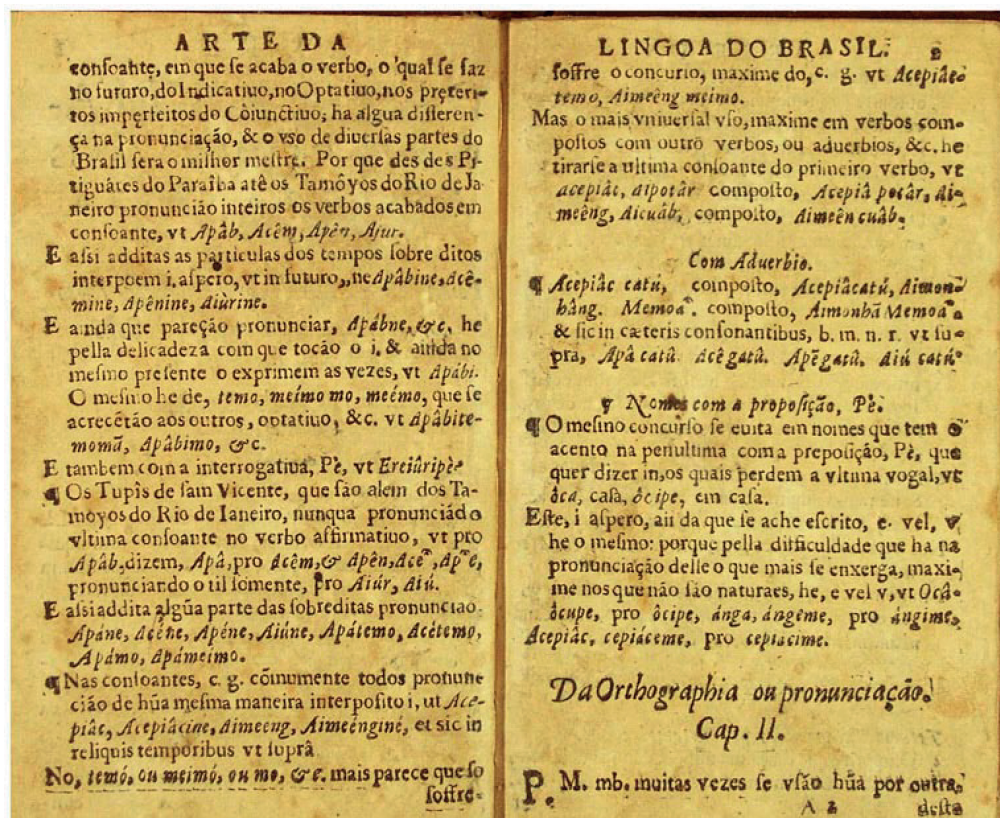 ARTE DA
conſoante, em que ſe acaba o verbo, o qual ſe faz
no futuro, do Indicatiuo, no Optatiuo, nos pręteri-
tos imperfeitos do Cōiunctiuo; ha algua differen-
ça na pronunciação, & o vso de diuerſas partes do
Braſil ſera o milhor meſtre. Por que des des Pi-
tiguâres do Paraîba atê os Tamôyos do Rio de Ja-
neiro pronuncião inteiros os verbos acabados em
conſoante, vt Apâb, Acêm, Apên, Ajur.
E aſſi additas as particulas dos tempos ſobre ditos
interpoem i. aſpero, vt in futuro, ne Apâbine, Acê-
mine, Apênine, Aiûrine.
E ainda que pareção pronunciar, Apâbne, &c. he
pella delicadeza com que tocão o i. & ainda no
meſmo preſente o exprimem as vezes, vt Apâbi.
O meſmo he de, temo, meímo mo, meémo, que ſe
acrecētão aos outros, optatiuo, &c. vt Apâbite-
momã, Apâbimo, &c.
E tambem com a interrogatiua, Pè, vt Ereiûripè?
¶ Os Tupîs de ſam Vicente, que ſão alem dos Ta-
moyos do Rio de Ianeiro, nunqua pronunciãd o
vltima conſoante no verbo affirmatiuo, vt pro
Apâb, dizem, Apâ, pro Acêm, & Apên, Acē, Apē,
pronunciando o til ſómente, pro Aiúr, Aiú.
E aſſi addita algūa parte das ſobreditas pronunciao.
Apáne, Acēne, Apéne, Aiúne, Apátemo, Acêtemo,
Apámo, Apámeímo.
¶ Nas conſoantes, c. g. cōmumente todos pronun-
cião de hūa meſma maneira interpoſito i, ut Ace-
piâc, Acepiâcine, Aimeeng, Aimeēnginé, et sic in
reliquis temporibus vt ſuprâ
No, temó, ou meimó, ou mo, &c. mais parece que ſo
ſoffre-
LINGOA DO BRASIL. 2
ſoffre o concurſo, maxime do, c. g. vt Acepiâc-
temo, Aimeêng meimo.
Mas o mais vniuerſal vſo, maxime em verbos com-
poſtos com outrō verbos, ou aduerbios, &c. he
tirarſe a ultima conſoante do primeiro verbo, vt
acepiâc, aipotâr compoſto, Acepiâ potâr, Ai-
meêng, Aicuâb, compoſto, Aimeên cuâb.
Com Aduerbio.
¶ Acepiâc catú, compoſto, Acepiâcatú, Aimon-
hâng. Memoã. compoſto, Aimonhã Memoã
& ſic in cæteris conſonantibus, b. m. n. r. vt ſu-
pra, Apâ catû. Acêgatû. Apēgatû. Aiú catú
¶ Nomes com a propoſição, Pè.
¶ O meſmo concurſo ſe euita em nomes que tem o
acento na penultima com a prepoſição, Pè, que
quer dizer in, os quais perdem a vltima vogal, vt
ôca, caſa, ôcipe, em caſa.
Eſte, i aſpero, ain da que ſe ache eſcrito, e. vel, v
he o meſmo: porque pella difficuldade que ha na
pronunciação delle o que mais ſe enxerga, maxi-
me nos que não ſão naturaes, he, e vel v, vt Ocâ-
ôcupe, pro ôcipe, ánga, ángeme, pro ángime,
Acepiâc, cepiáceme, pro cepiacime.
Da Orthographia ou pronunciação.
Cap. II.
P. M. mb. muitas vezes ſe vſão hūa por outra,
A 2 deſta